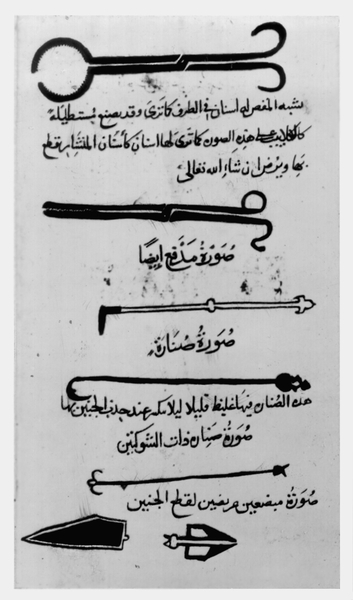 يشبه المقص له اسنان في الطرف كما ترى وقد يصنع مستطيلة
كالكلاليب على هذه الصورة كما ترى لها اسنان كأسنان المنشار يقطع
بها ويرض ان شاء الله تعالى
صورة مدفع ايضًا
صورة صنارة
هذه الصنارة فيها غلظ قليلا ليلا ينكسر عند جذب الجنين بها
صورة صنارة ذات الشوكتين
صورة مبضعين عريضين لقطع الجنين